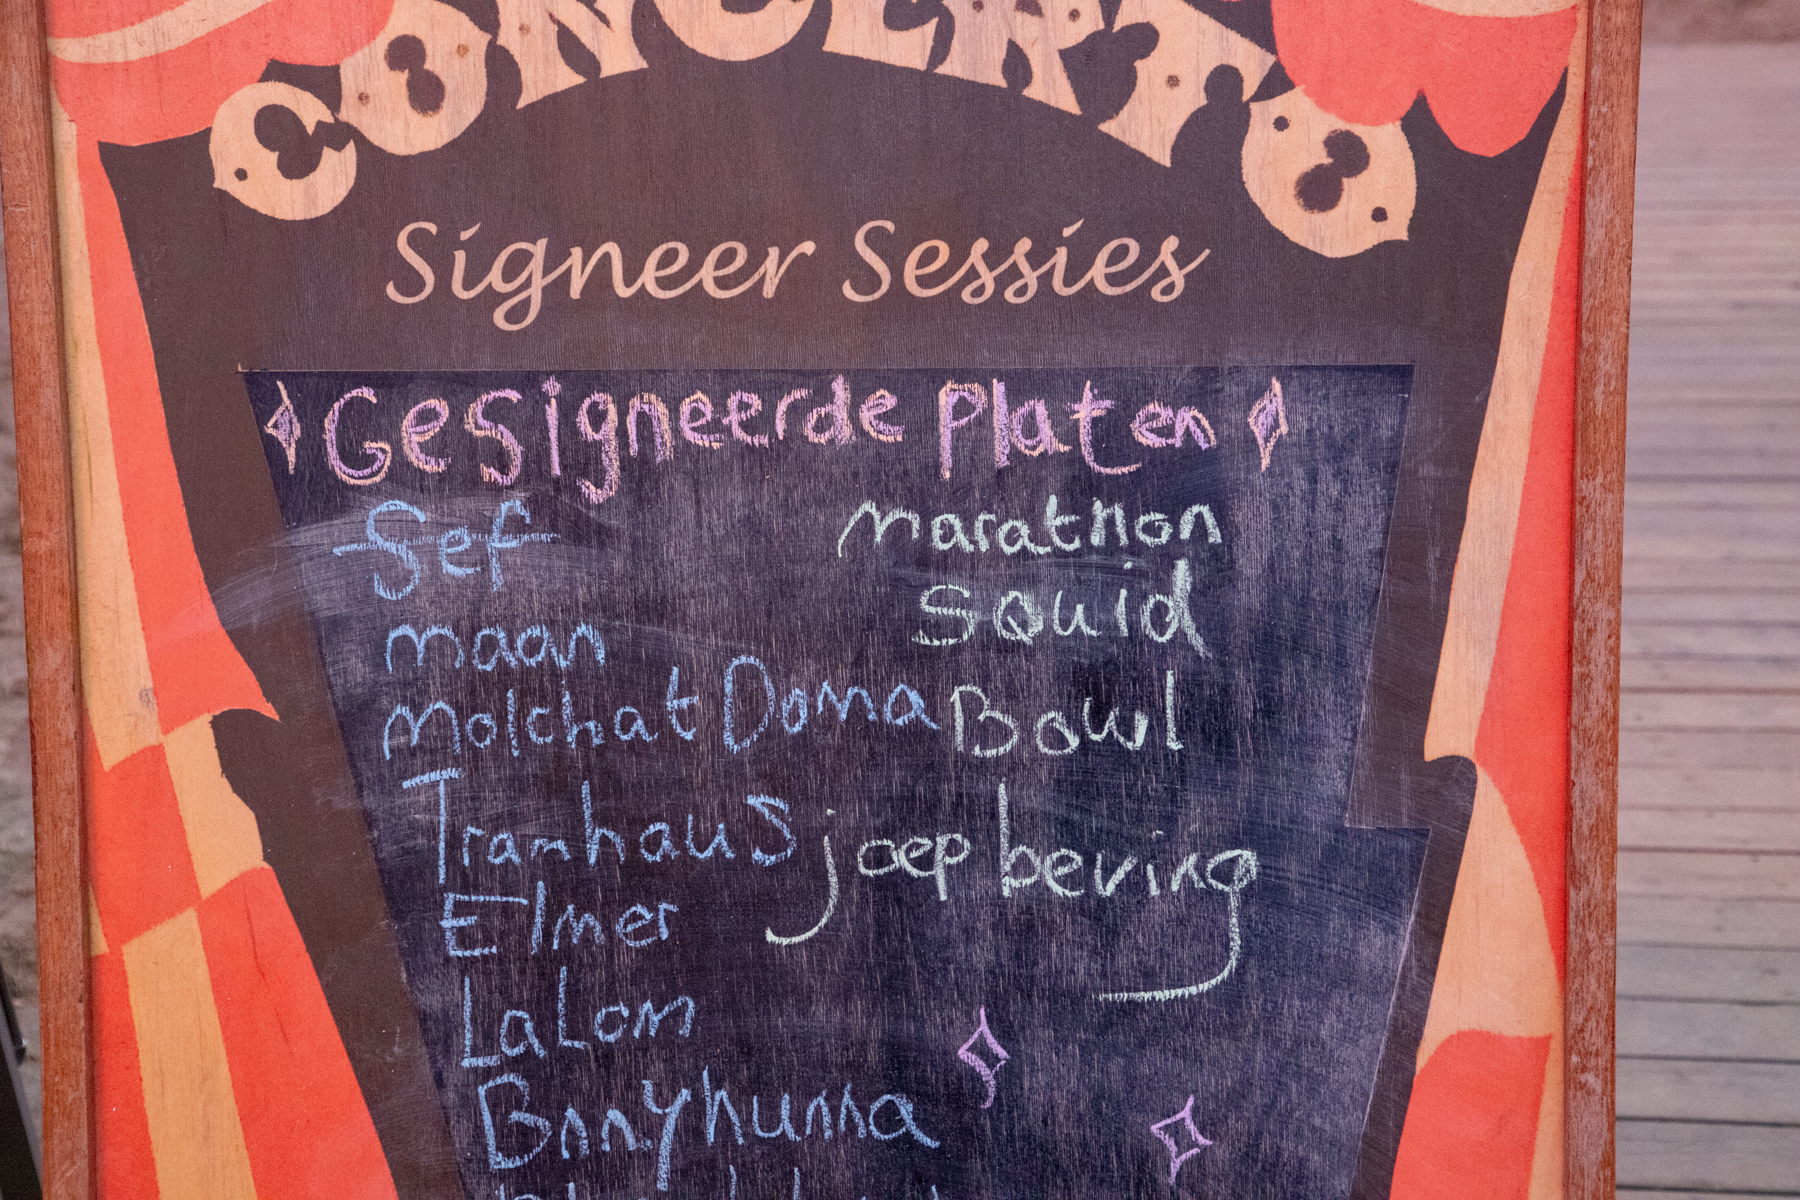 CONCERT
Signeer Sessies
Gesigneerde Platen
Sef
maan
Molchat Doma
Tramhaus
Elmer
LaLom
Bnnyhunna
marathon
Squid
Bowl
joep beving